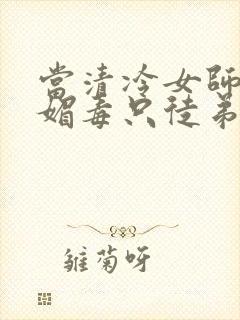 當清冷女師
媚毒只徒弟
雛菊呀